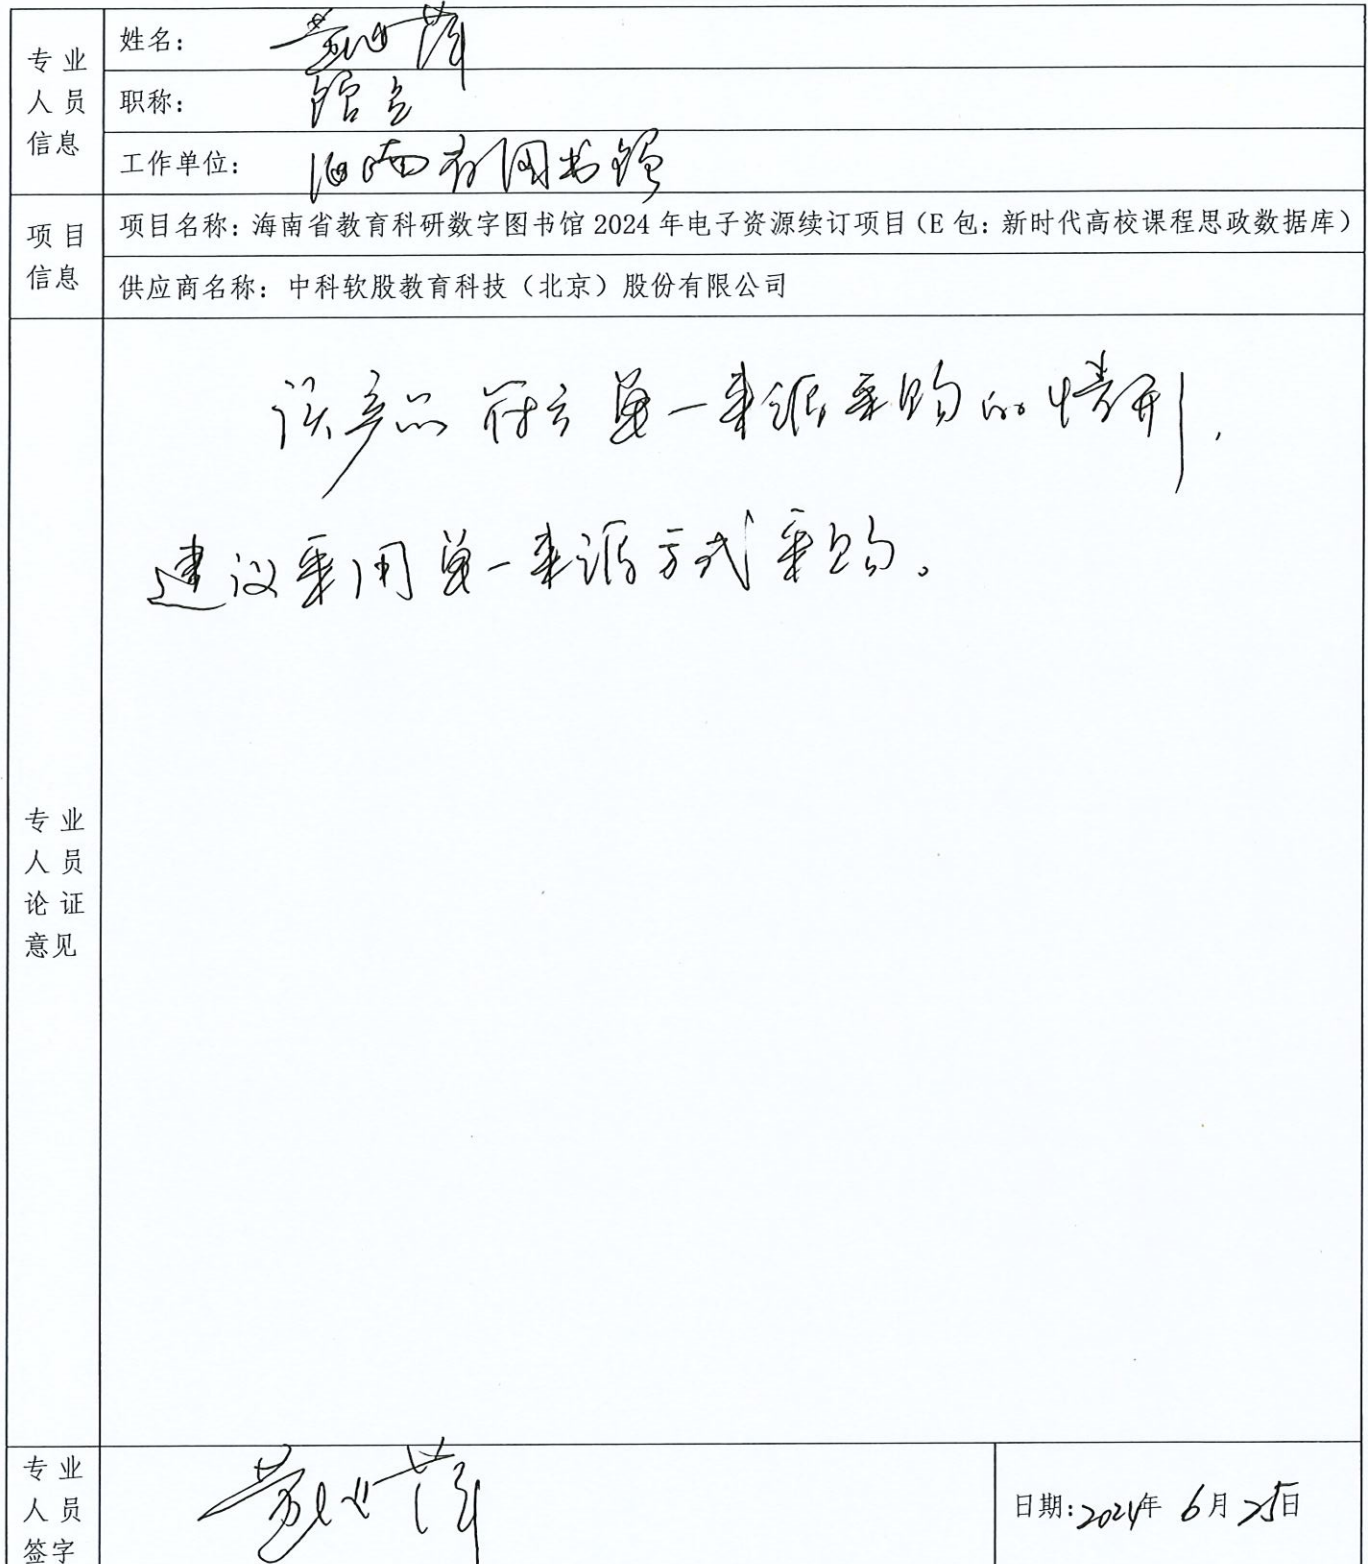 专业人员信息
姓名：
职称： 馆员
工作单位： 海南省图书馆
项目信息
项目名称：海南省教育科研数字图书馆 2024 年电子资源续订项目（E 包：新时代高校课程思政数据库）
供应商名称：中科软股教育科技（北京）股份有限公司
专业人员论证意见
该产品符合单一来源采购的情形，
建议采用单一来源方式采购。
专业人员签字
日期：2024年 6月 25日